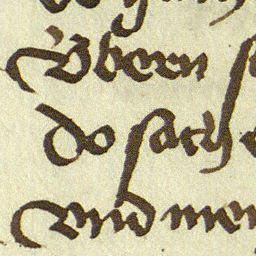 Vbern
do sach
vnd men